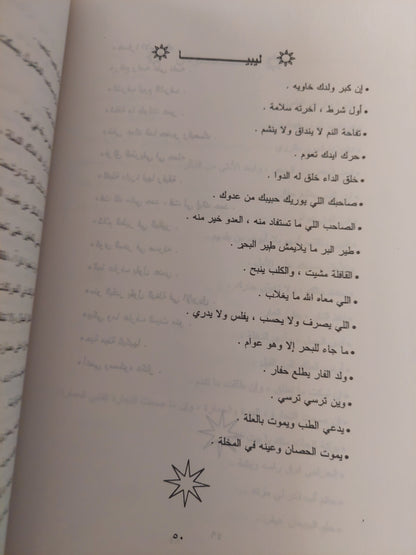 ليبيا
• إن كبر ولدك خاويه .
• أول شرط ، أخرته سلامة .
• تفاحة النم لا ينداق ولا ينشم .
• حرك ايدك تعوم .
• خلق الداء خلق له الدوا .
• صاحبك اللي يوريك حبيبك من عدوك .
• الصاحب اللي ما تستفاد منه ، العدو خير منه .
• طير البر ما يلايمش طير البحر .
• القافلة مشيت ، والكلب ينبح .
• اللي معاه الله ما يغلاب .
• اللي يصرف ولا يحسب ، يفلس ولا يدري .
• ما جاء للبحر إلا وهو عوام .
• ولد الفار يطلع حفار .
• وين ترسي ترسي .
• يدعي الطب ويموت بالعلة .
• يموت الحصان وعينه في المخلة .
٥٠